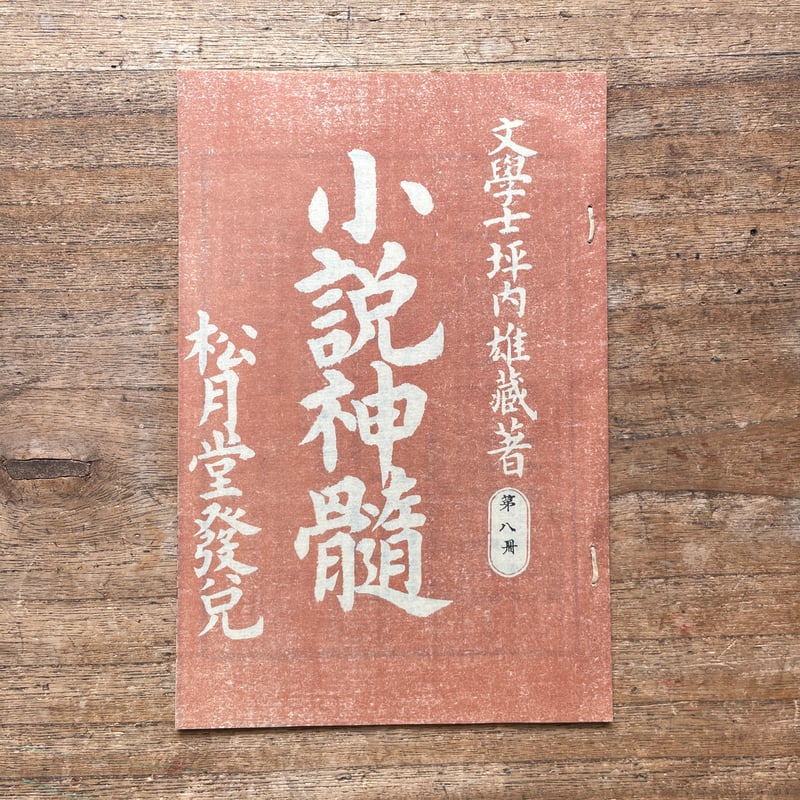 文學士坪内雄藏著
第八册
小説神髓
松月堂發兌